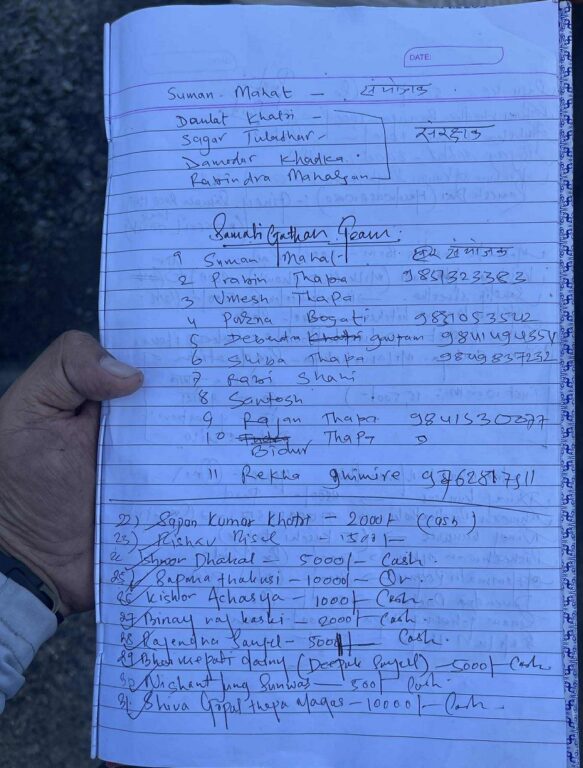 DATE:
Suman Mahat - संयोजक
Daulat Khatri -
Sagar Tuladhar - संरक्षक
Damodar Khadka
Rabindra Mahatjan
Samati Gathan Team:
1 Suman Mahat संयोजक
2 Prabin Thapa 9851323383
3 Umesh Thapa
4 Padna Bogati 9851053542
5 Debendra gautam 9841494354
6 Shiba Thapa 9849837232
7 Rabi Shahi
8 Santosh
9 Rajan Thapa 9841530277
10 Bidur Thapa
11 Rekha ghimire
22) Sapan Kumar Khatri - 2000/- (Cash)
23) Rishav - 1500/-
24 Dhakal - 5000/- Cash.
25) Sapana - 10000/- Qr
26 Kishor Acharya - 1000/- Cash.
27 Binay raj karki - 2000/- Cash
28 Rajendra - Cash.
29 (Deepak) - 5000/- Cash
30 Nishant Jung Sunwar - 500/- Cash.
31 Shiva Gopal thapa magar - 10000/- Cash.